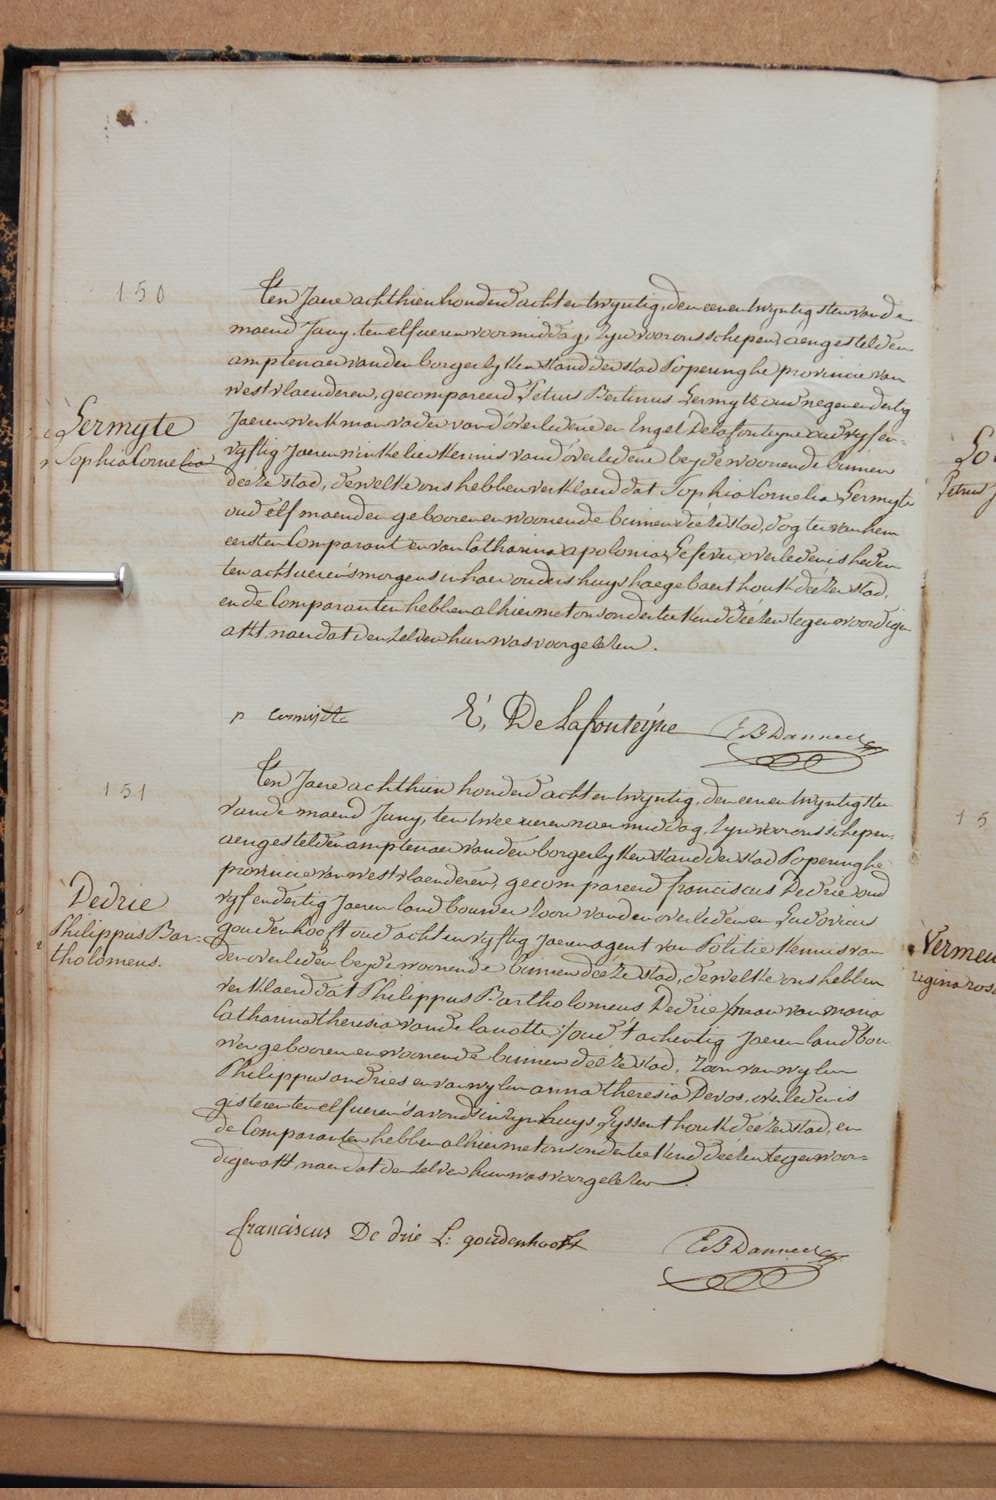 150
Ten Jaere achthien honderd acht en twyntig, den eenen twyntigsten vande
maend Juny, ten elf ueren voormiddag, zyn voor ons schepen, aengestelden
amptenaer vanden borgerlyken stand der stad Poperinghe provincie van
westvlaenderen, gecompareerd Petrus Bertinus Germyte oud negenendertig
Germyte
Sophia Cornelia
Jaeren werkman vader vand'overledene en Engel Delafonteyne oud vyfen-
vyftig Jaeren winkelier kennis vand'overledene beyde woonende binnen
deeze stad, dewelke ons hebben verklaerd dat Sophia Cornelia Germyte
oud elf maenden gebooren en woonende binnen deeze stad, dogter van hem
eersten Comparant en van Catharina apolonia Lefever, overleden is heden
ten acht ueren 'smorgens in haer ouders huys haegebaert houk deezer stad,
en de Comparanten hebben alhier met ons onderteekend deezen tegenwoordigen
akt, naer dat den zelven hun was voorgelezen.
p cermijtte
E, De Lafonteijne
E B Danneel
151
Ten Jaere achthien honderd acht en twyntig, den eenen twyntigsten
vande maend Juny, ten twee ueren naermiddag, zyn voor ons schepen,
aengestelden amptenaer vanden borgerlyken stand der stad Poperinghe
provincie van westvlaenderen, gecompareerd franciscus Dedrie oud
Dedrie
Philippus Bar-
tholomeus.
vyfendertig Jaeren landbouwer zoon vanden overledenen Ludovicus
goudenhooft oud acht en vyftig Jaeren agent van Politie kennis van
den overleden beyde woonende binnen deeze stad, dewelke ons hebben
verklaerd dat Philippus Bartholomeus Dedrie man van maria
Catharina theresia vande lanotte oud t'achentig Jaeren landbou-
wer gebooren en woonende binnen deeze stad, Zoon van wylen
Philippus andries en van wylen anna theresia Devos, overleden is
gisteren ten elf ueren 's avonds in zyn huys Eyssent houk deezer stad, en
de Comparanten hebben alhier met ons onderteekend deezen tegenwoor-
digen akt, naer dat den zelven hun was voorgelezen.
franciscus De drie L: goudenhooft
E B Danneel
Petrus
15
Vermeu
regina rosa